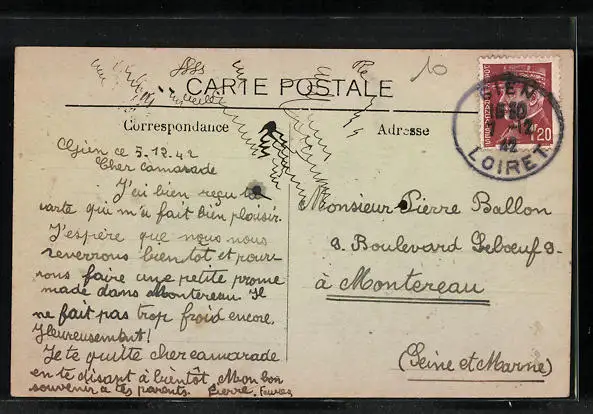 CARTE POSTALE
Correspondance
Adresse
10
GIEN
LOIRET
1F20
Gien ce 5.12.42
Cher camarade
J'ai bien reçu ta
carte qui m'a fait bien plaisir.
J'espère que nous nous
reverrons bientot et pour-
rons faire une petite prome
nade dans Montereau Il
ne fait pas trop froid encore.
Heureusement!
Je te quitte cher camarade
en te disant à bientôt, Mon bon
souvenir à tes parents. Pierre.
Monsieur Pierre Ballon
9. Boulevard Leboeuf 9.
à Montereau
(Seine et Marne)